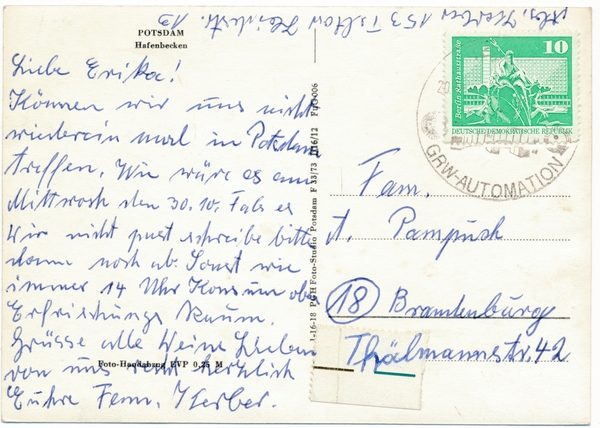 POTSDAM
Hafenbecken
Liebe Erika!
Können wir uns nicht
wiederein mal in Potsdam
treffen. Wie wäre es am
Mittwoch den 30.10. Fals es
Dir nicht past schreibe bitte
dann noch ab. Sonst wie
immer 14 Uhr Konsum ob.
Erfrischungs Raum.
Grüsse alle Deine Lieben
von uns recht herzlich
Euhre Fam. Kerber.
Foto-Handabzug EVP 0,25 M
Abs. Kerber 153 Teltow
13
1-16-18 PGH Foto-Studio Potsdam F 33/73 D16/12 FoG 006
10
Berlin, Rathausstraße
DEUTSCHE DEMOKRATISCHE REPUBLIK
GRW-AUTOMATION
Fam.
A. Pampuch
18 Brandenburg
Thälmannstr. 42